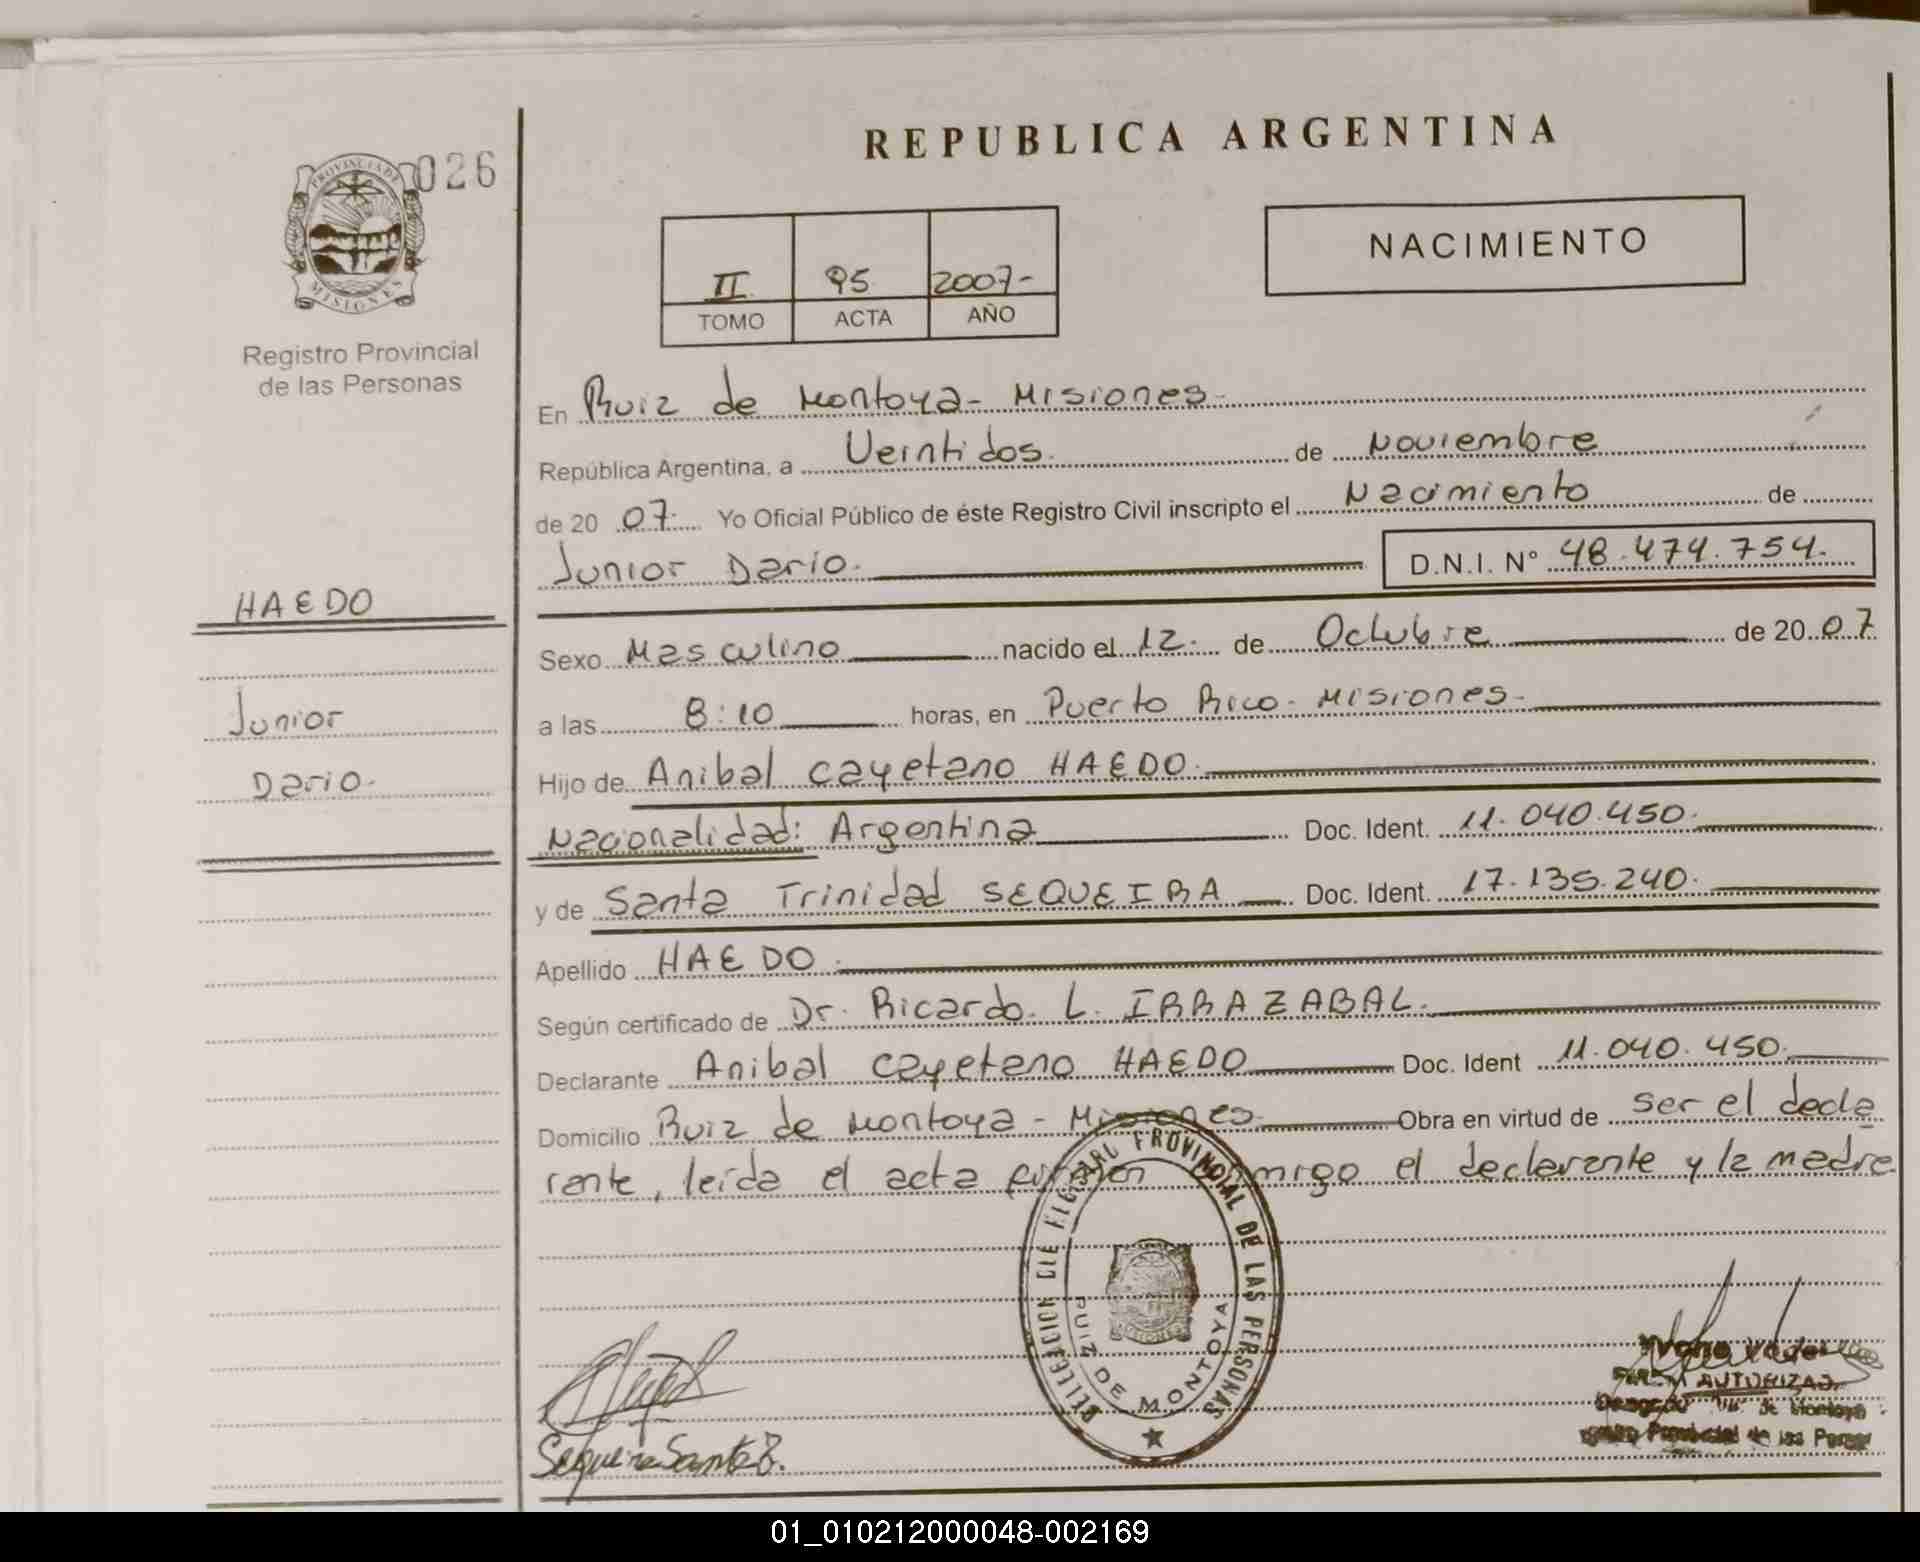 REPUBLICA ARGENTINA
026
PROVINCIA DE
MISIONES
Registro Provincial
de las Personas
II 95 2007-
TOMO ACTA AÑO
NACIMIENTO
En Ruiz de Montoya - Misiones.
República Argentina, a Veintidos. de Noviembre
de 20 07. Yo Oficial Público de éste Registro Civil inscripto el Nacimiento de
Junior Dario. D.N.I. N° 48.474.754.
HAEDO
Junior
Dario.
Sexo Masculino nacido el 12. de Octubre de 20 07
a las 8:10 horas, en Puerto Rico - Misiones.
Hijo de Anibal Cayetano HAEDO.
Nacionalidad: Argentina Doc. Ident. 11.040.450.
y de Santa Trinidad SEQUEIRA Doc. Ident. 17.135.240.
Apellido HAEDO.
Según certificado de Dr. Ricardo. L. IRRAZABAL.
Declarante Anibal Cayetano HAEDO Doc. Ident 11.040.450.
Domicilio Ruiz de Montoya - Misiones Obra en virtud de ser el decla
rante, leída el acta firman conmigo el declarante y la madre
DELEGACION DEL REGISTRO PROVINCIAL DE LAS PERSONAS
RUIZ DE MONTOYA
Sequeira Santa T.
AUTORIZAD
de Montoya
Provincial de las Person
01_010212000048-002169